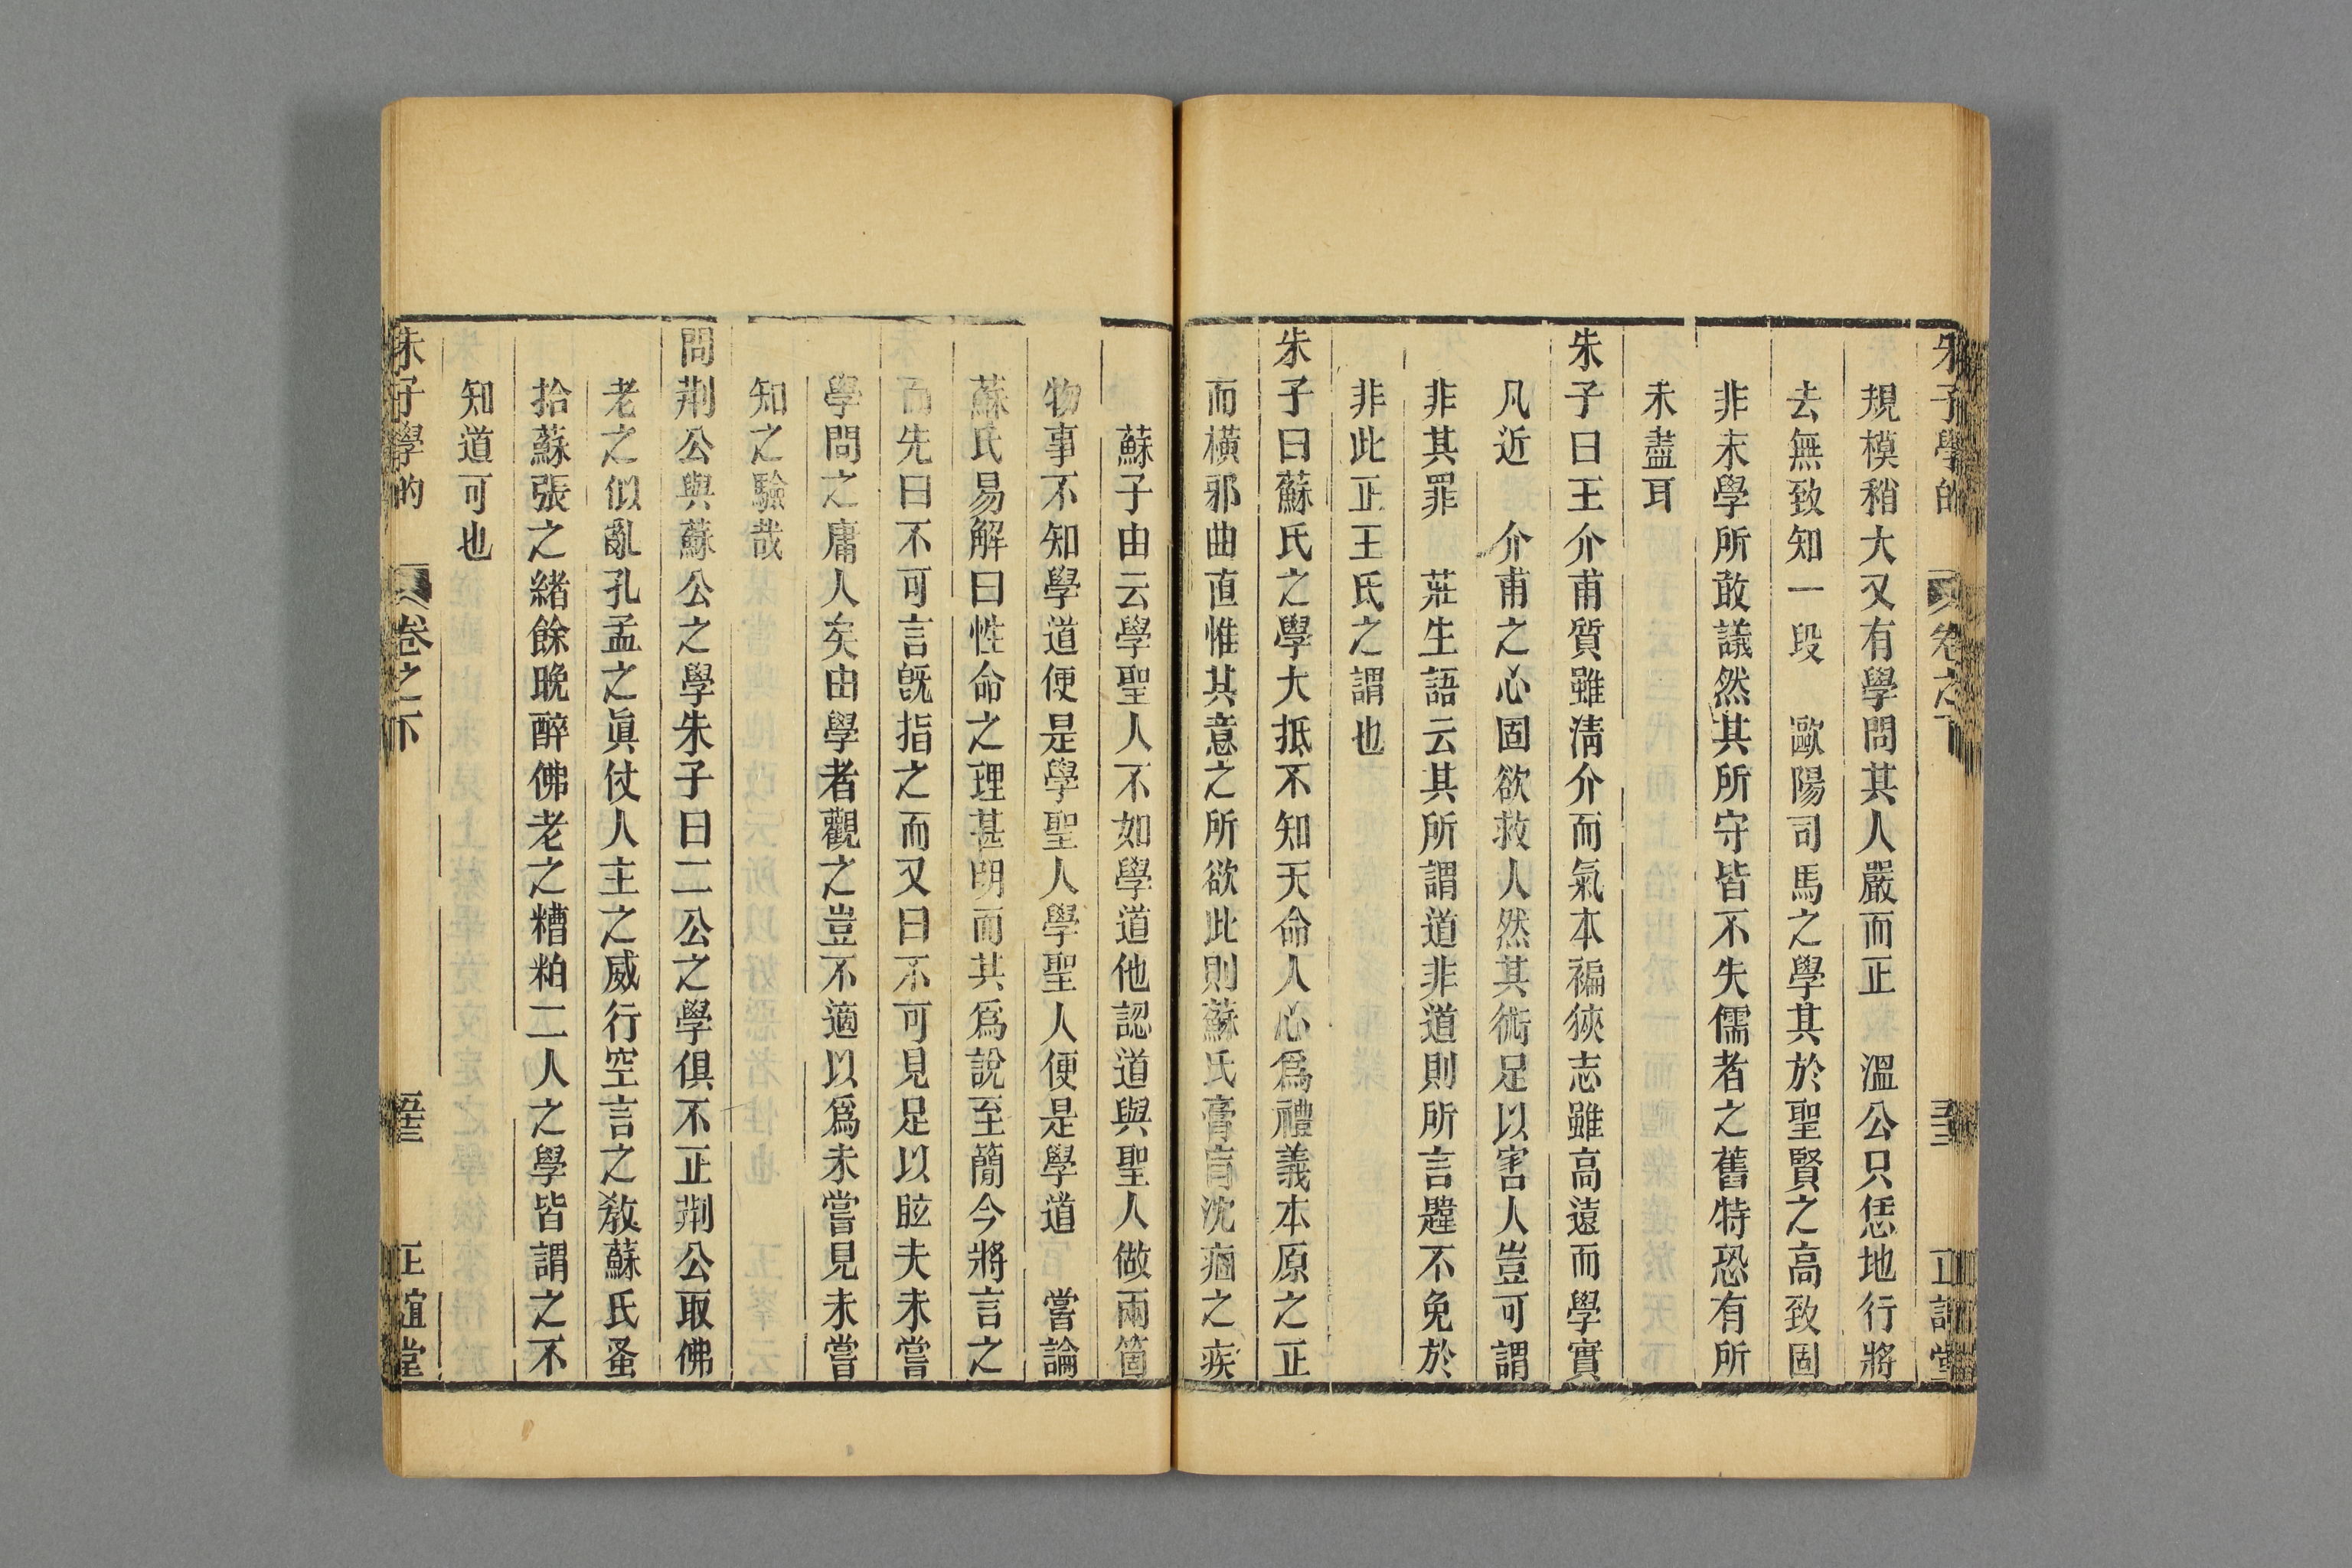 朱子學的 卷之下 正誼堂
規模稍大又有學問其人嚴而正 溫公只恁地行將
去無致知一段 歐陽司馬之學其於聖賢之高致固
非末學所敢議然其所守皆不失儒者之舊特恐有所
未盡耳
朱子曰王介甫質雖清介而氣本褊狹志雖高遠而學實
凡近 介甫之心固欲救人然其術足以害人豈可謂
非其罪 莊生語云其所謂道非道則所言韙不免於
非此正王氏之謂也
朱子曰蘇氏之學大抵不知天命人心為禮義本原之正
而橫邪曲直惟其意之所欲此則蘇氏膏肓沈痼之疾
蘇子由云學聖人不如學道他認道與聖人做兩箇
物事不知學道便是學聖人學聖人便是學道 嘗論
蘇氏易解曰性命之理甚明而其爲說至簡今將言之
而先曰不可言旣指之而又曰不可見足以眩夫未嘗
學問之庸人矣由學者觀之豈不適以爲未嘗見未嘗
知之驗哉
問荆公與蘇公之學朱子曰二公之學俱不正荆公取佛
老之似亂孔孟之眞仗人主之威行空言之敎蘇氏蚤
拾蘇張之緒餘晚醉佛老之糟粕二人之學皆謂之不
知道可也
朱子學的 卷之下 正誼堂